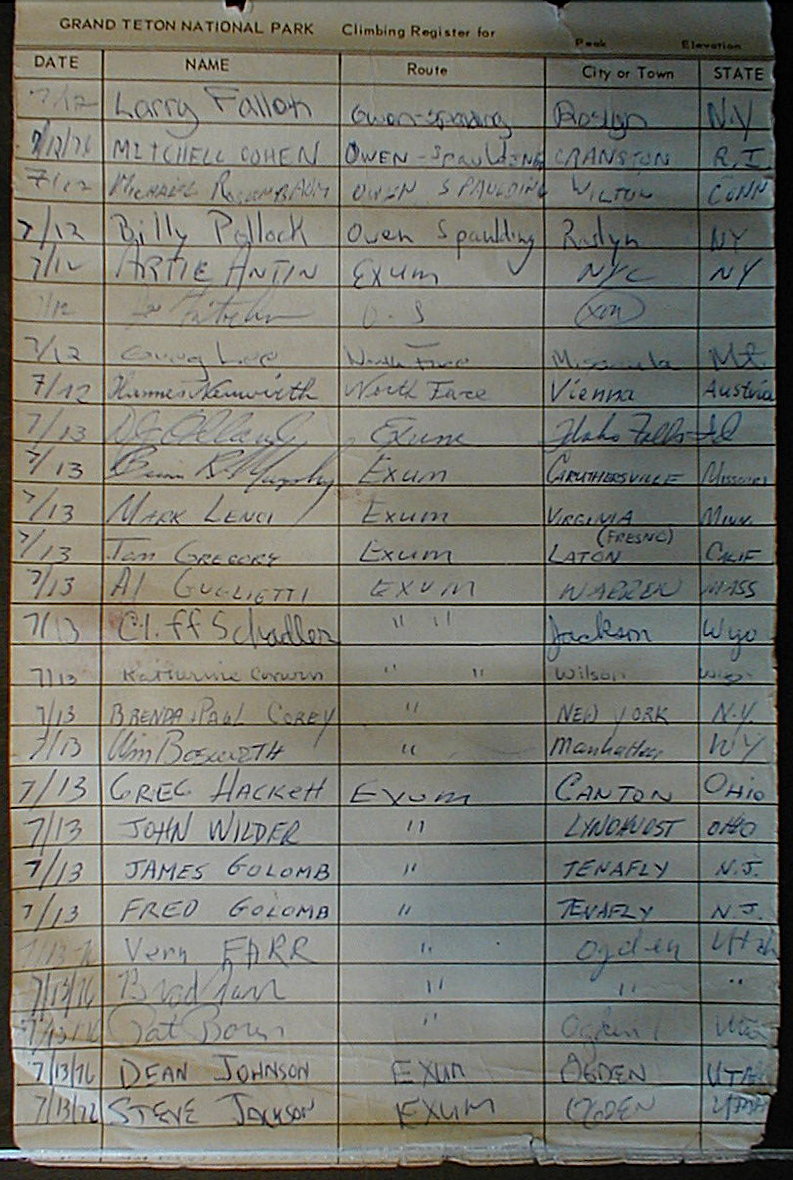 GRAND TETON NATIONAL PARK Climbing Register for
Peak Elevation
DATE NAME Route City or Town STATE
7/12 Larry Fallon Owen-Spaulding Roslyn N.Y
7/12/76 MITCHELL COHEN OWEN-SpauldING CRANSTON R.I.
7/12 MICHAEL ROSENBAUM OWEN SPAULDING WILTON CONN
7/12 Billy Pollock Owen Spaulding Roslyn NY
7/12 ARTIE ANTIN Exum NYC NY
7/12 O-S
7/12 North Face Missoula Mt.
7/12 North Face Vienna Austria
7/13 Exum Idaho Falls Id
7/13 Murphy EXUM CARUTHERSVILLE Missouri
7/13 MARK LENCI EXUM VIRGINIA MINN.
(FRESNO)
7/13 Tom GREGORY EXUM LATON CALIF
7/13 Al GUGLIETTI EXUM WARREN MASS
7/13 Cliff Schadler " " Jackson Wyo
7/13 Katharine Corwin " " Wilson Wyo
7/13 BRENDA & PAUL COREY " NEW YORK N.Y.
7/13 Wm BOSWORTH " Manhattan NY
7/13 GREG HACKETT EXUM CANTON OHio
7/13 JOHN WILDER " LYNDHURST OHIO
7/13 JAMES GOLOMB " TENAFLY N.J.
7/13 FRED GOLOMB " TENAFLY N.J.
7/13/76 Vern FARR " Ogden Utah
7/13/76 Brad Farr " " "
7/13/76 Pat " Ogden Utah
7/13/76 DEAN JOHNSON EXUM OGDEN UTAH
7/13/76 STEVE JACKSON EXUM OGDEN UTAH